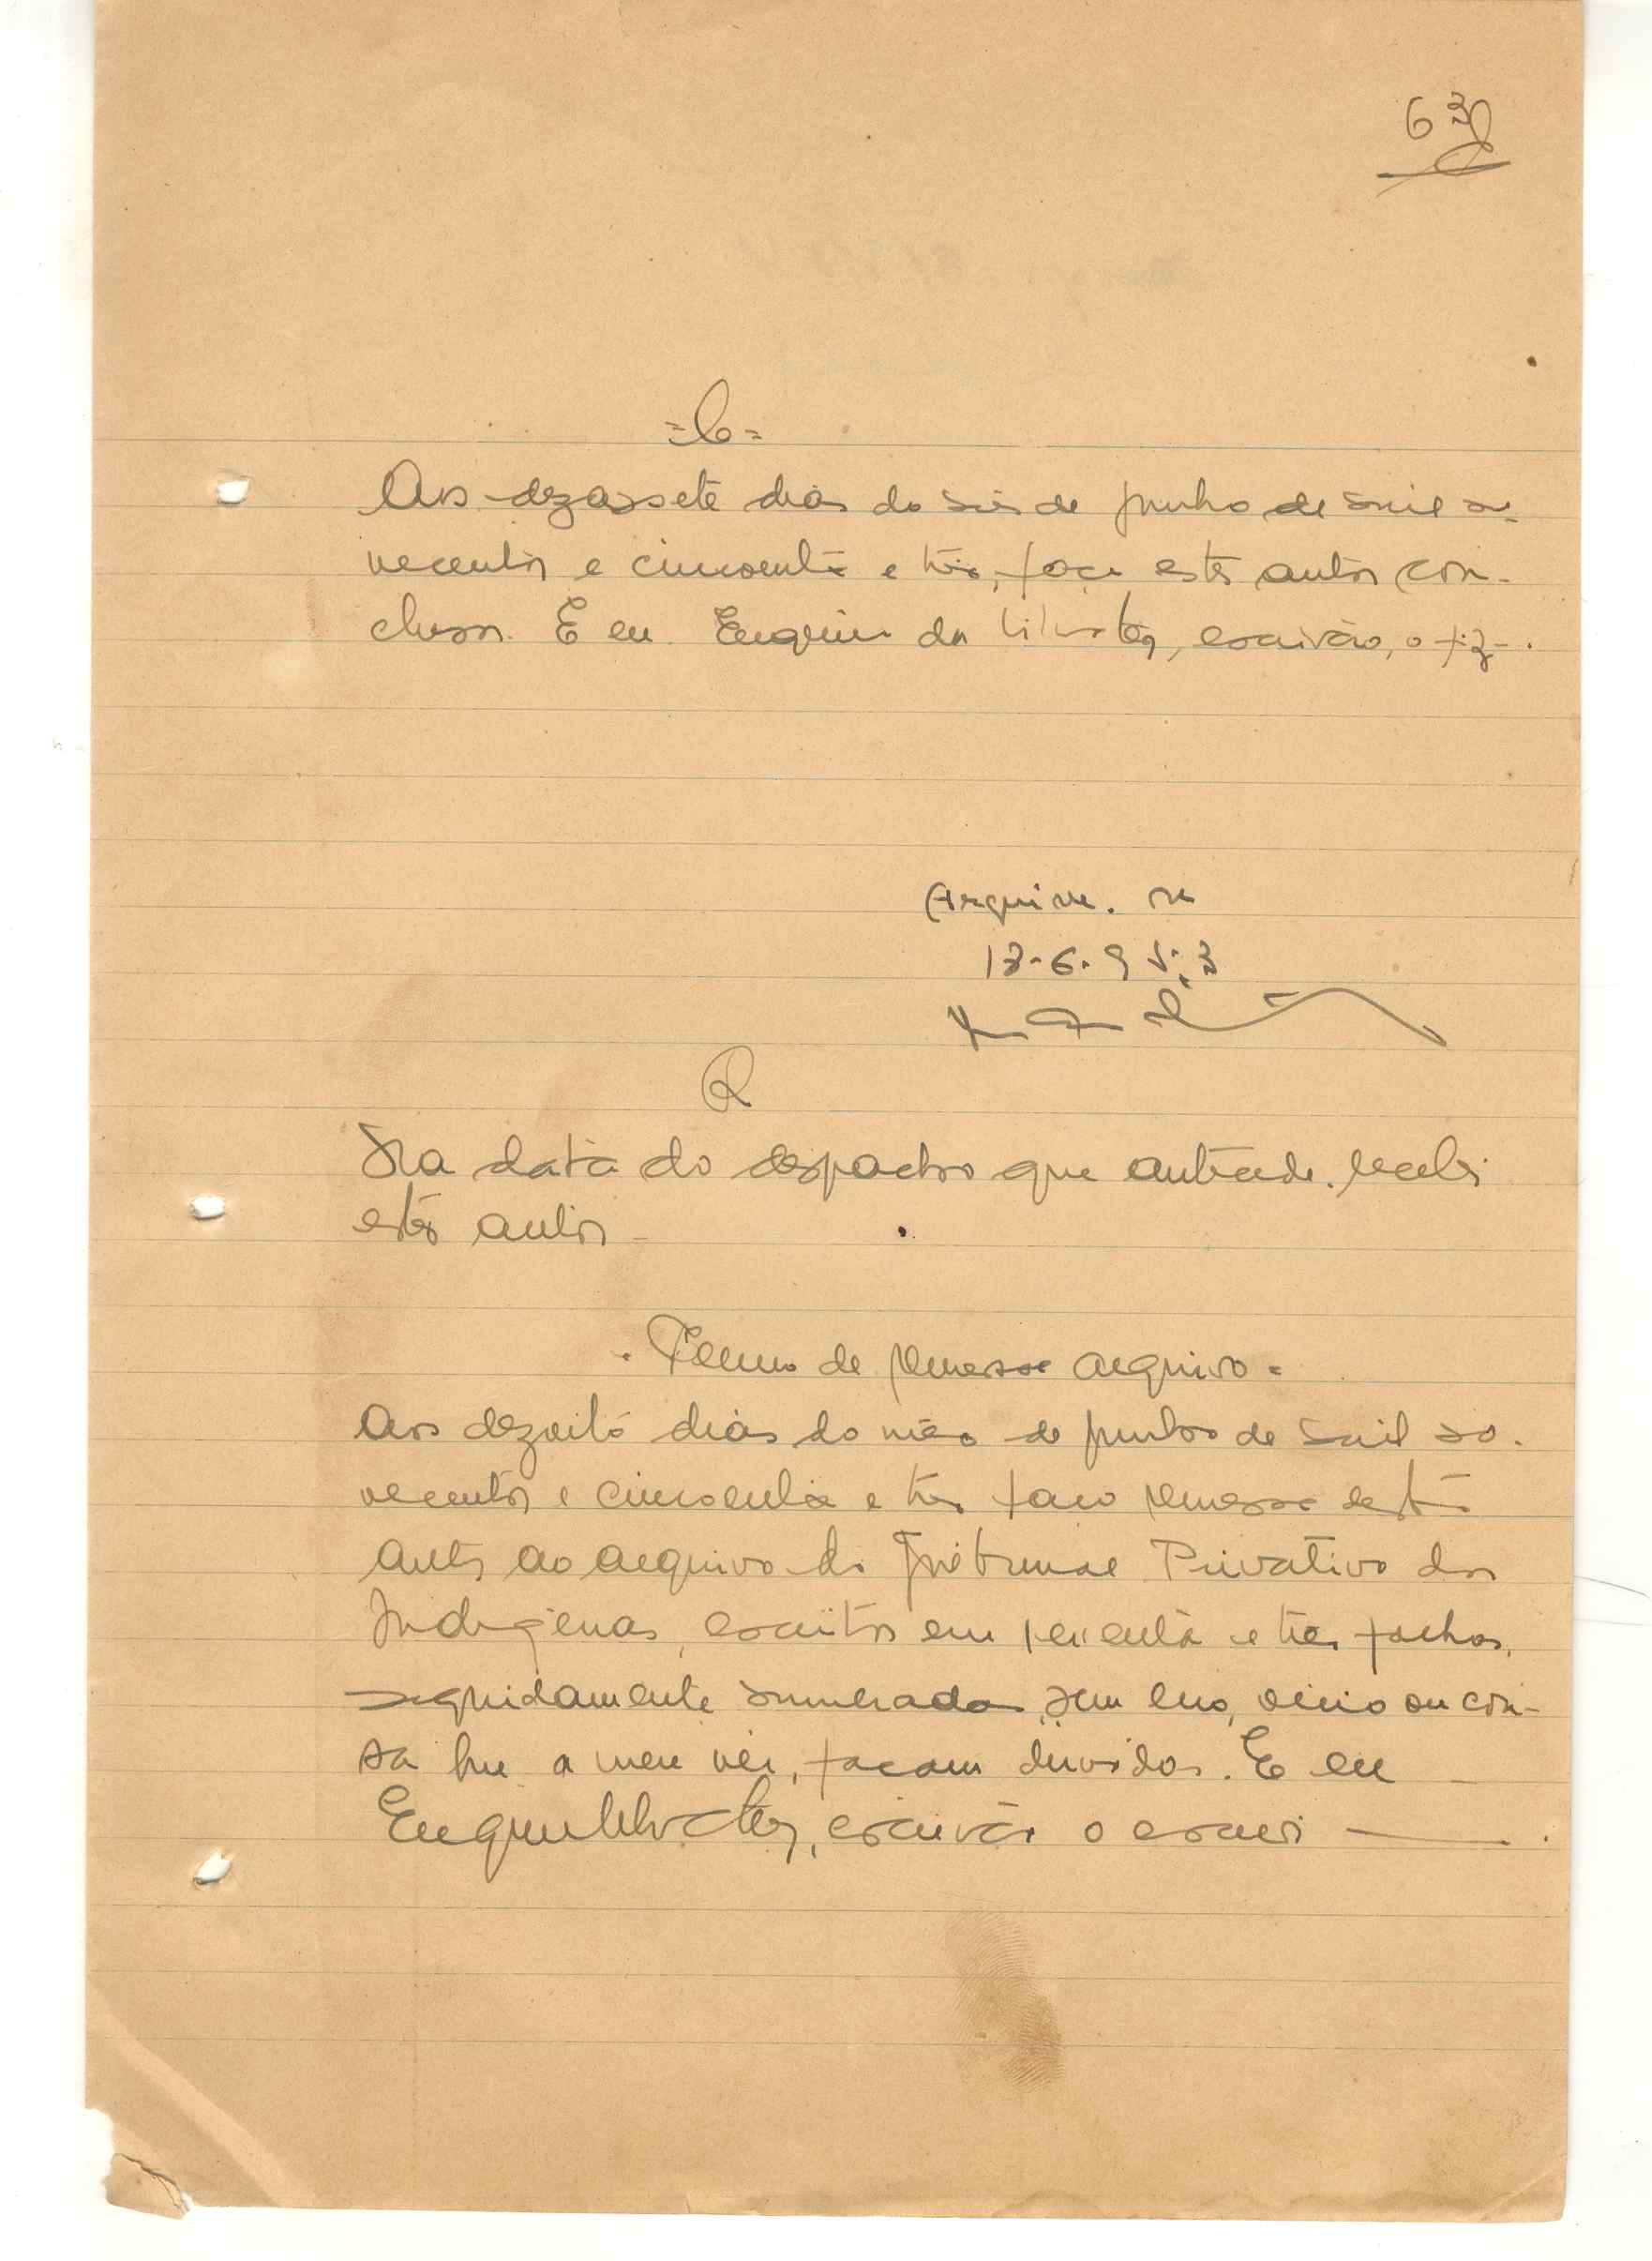 63
=C=
Aos dezassete dias do mês de Junho de mil no-
vecentos e cincoenta e três, faço estes autos con-
clusos. E eu Eugénio da Silva, escrivão, o fiz-.
Arquive-se
18-6-953
R
Na data do despacho que antecede, recebi
estes autos -
- Termo de remessa arquivo -
Aos dezoito dias do mês de Junho de mil no-
vecentos e cincoenta e três faço remessa destes
autos ao arquivo do Tribunal Privativo dos
Indígenas, escritos em sessenta e três folhas,
seguidamente numeradas, sem erro, vicio ou coi-
sa que a meu ver, façam dúvidas. E eu
escrivão o escrevi